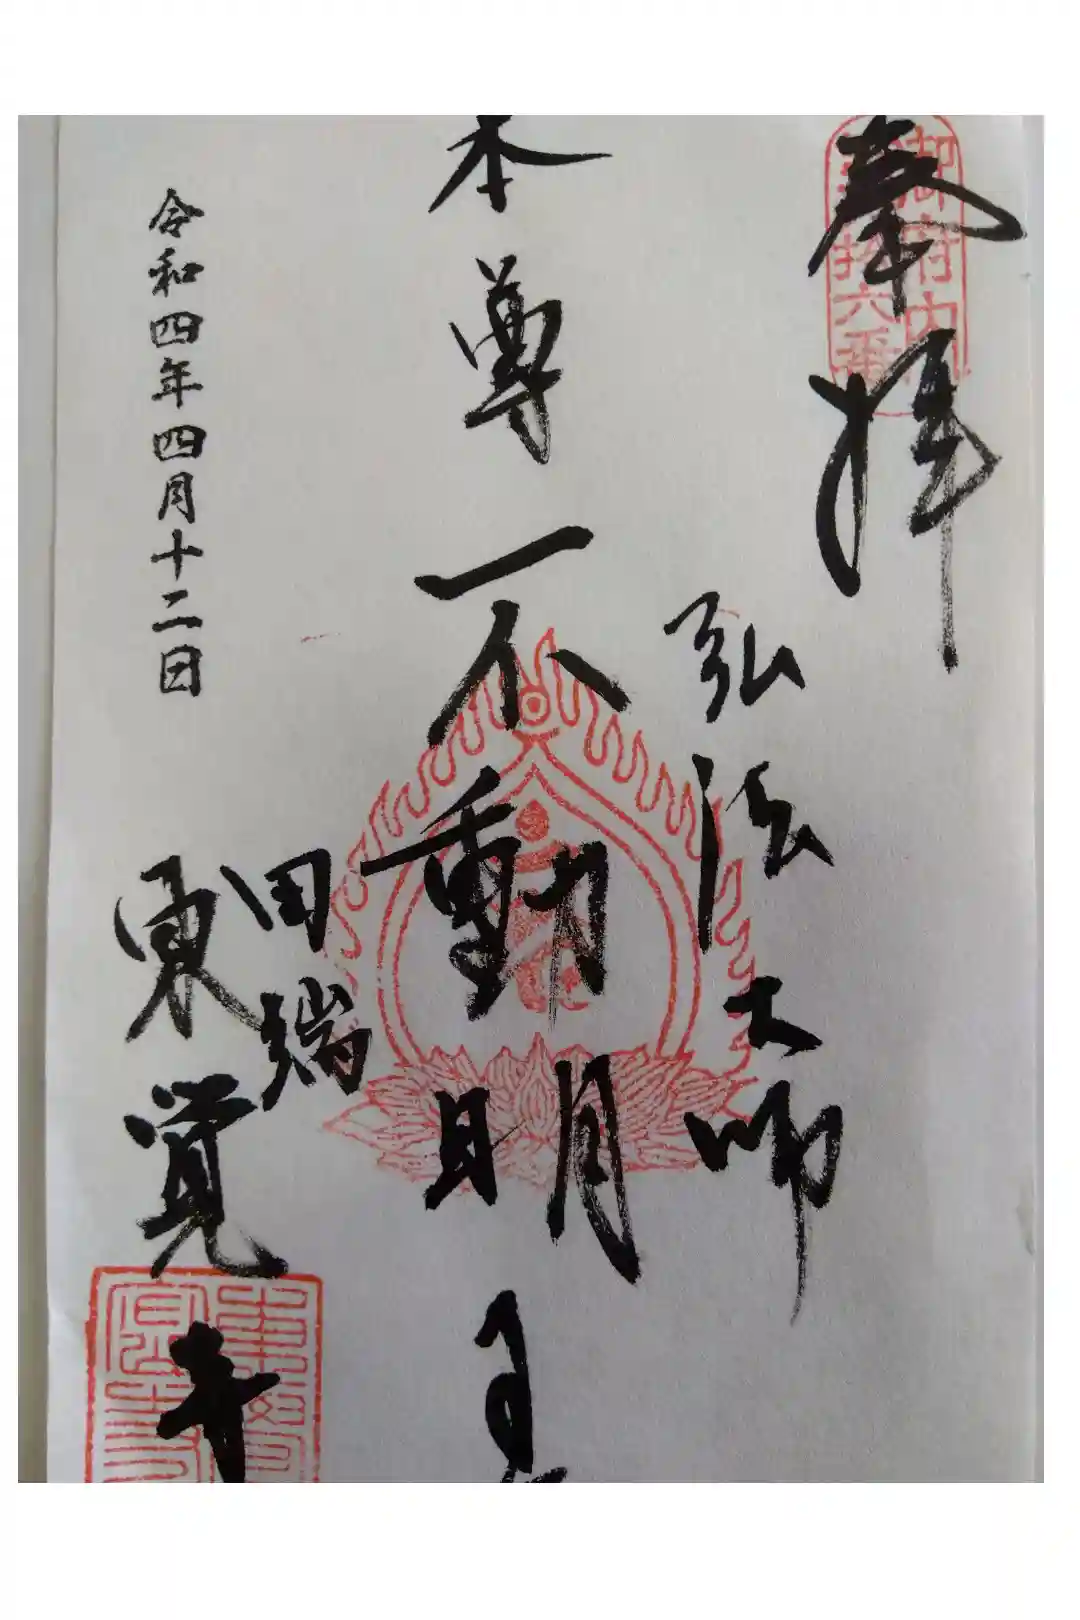 奉拝
御府内
拾六番
弘法大師
本尊不動明王
田端
東覚寺
令和四年四月十二日